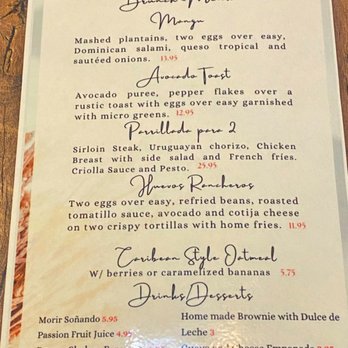 Brunch Menu
Mangu
Mashed plantains, two eggs over easy,
Dominican salami, queso tropical and
sautéed onions. 13.95
Avocado Toast
Avocado puree, pepper flakes over a
rustic toast with eggs over easy garnished
with micro greens. 12.95
Parrillada para 2
Sirloin Steak, Uruguayan chorizo, Chicken
Breast with side salad and French fries.
Criolla Sauce and Pesto. 25.95
Huevos Rancheros
Two eggs over easy, refried beans, roasted
tomatillo sauce, avocado and cotija cheese
on two crispy tortillas with home fries. 11.95
Caribean Style Oatmeal
W/ berries or caramelized bananas 5.75
Drinks Desserts
Morir Soñando 5.95
Passion Fruit Juice 4.95
Home made Brownie with Dulce de
Leche 3